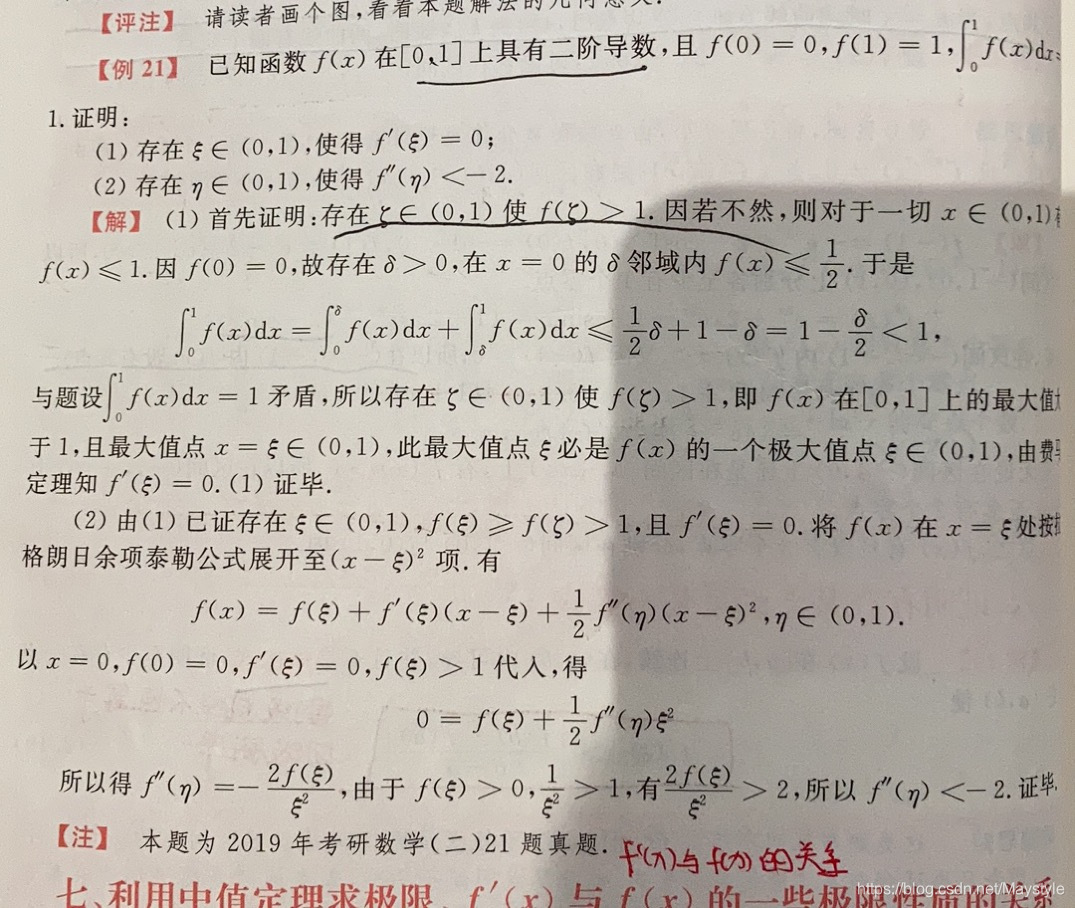 【评注】 请读者画个图,看看本题解法的几何意义.
【例 21】 已知函数 f(x) 在[0,1] 上具有二阶导数,且 f(0) = 0, f(1) = 1, ∫₀¹ f(x)dx =
1. 证明:
(1) 存在 ξ ∈ (0,1),使得 f′(ξ) = 0;
(2) 存在 η ∈ (0,1),使得 f″(η) <− 2.
【解】 (1) 首先证明:存在 ζ ∈ (0,1) 使 f(ζ) > 1. 因若不然,则对于一切 x ∈ (0,1)有
f(x) ⩽ 1. 因 f(0) = 0,故存在 δ > 0,在 x = 0 的 δ 邻域内 f(x) ⩽ 1/2. 于是
∫₀¹ f(x)dx = ∫₀^δ f(x)dx + ∫_δ¹ f(x)dx ⩽ 1/2 δ + 1 − δ = 1 − δ/2 < 1,
与题设∫₀¹ f(x)dx = 1 矛盾,所以存在 ζ ∈ (0,1) 使 f(ζ) > 1,即 f(x) 在[0,1] 上的最大值大
于 1,且最大值点 x = ξ ∈ (0,1),此最大值点 ξ 必是 f(x) 的一个极大值点 ξ ∈ (0,1),由费
定理知 f′(ξ) = 0. (1) 证毕.
(2) 由(1) 已证存在 ξ ∈ (0,1), f(ξ) ⩾ f(ζ) > 1,且 f′(ξ) = 0. 将 f(x) 在 x = ξ 处按
格朗日余项泰勒公式展开至(x − ξ)² 项. 有
f(x) = f(ξ) + f′(ξ)(x − ξ) + 1/2 f″(η)(x − ξ)², η ∈ (0,1).
以 x = 0, f(0) = 0, f′(ξ) = 0, f(ξ) > 1 代入,得
0 = f(ξ) + 1/2 f″(η)ξ²
所以得 f″(η) =− 2f(ξ)/ξ²,由于 f(ξ) > 0, 1/ξ² > 1,有 2f(ξ)/ξ² > 2,所以 f″(η) <− 2. 证毕.
【注】 本题为 2019 年考研数学(二)21 题真题.
f′(x)与 f(x) 的关系
七、利用中值定理求极限、f′(x) 与 f(x) 的一些极限性质的关系
https://blog.csdn.net/Maystyle